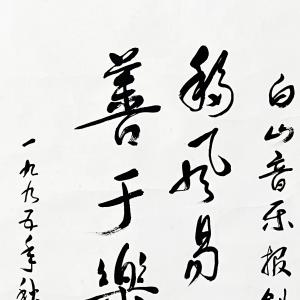 白山音乐报创
移风易
善于樂
一九九五年秋